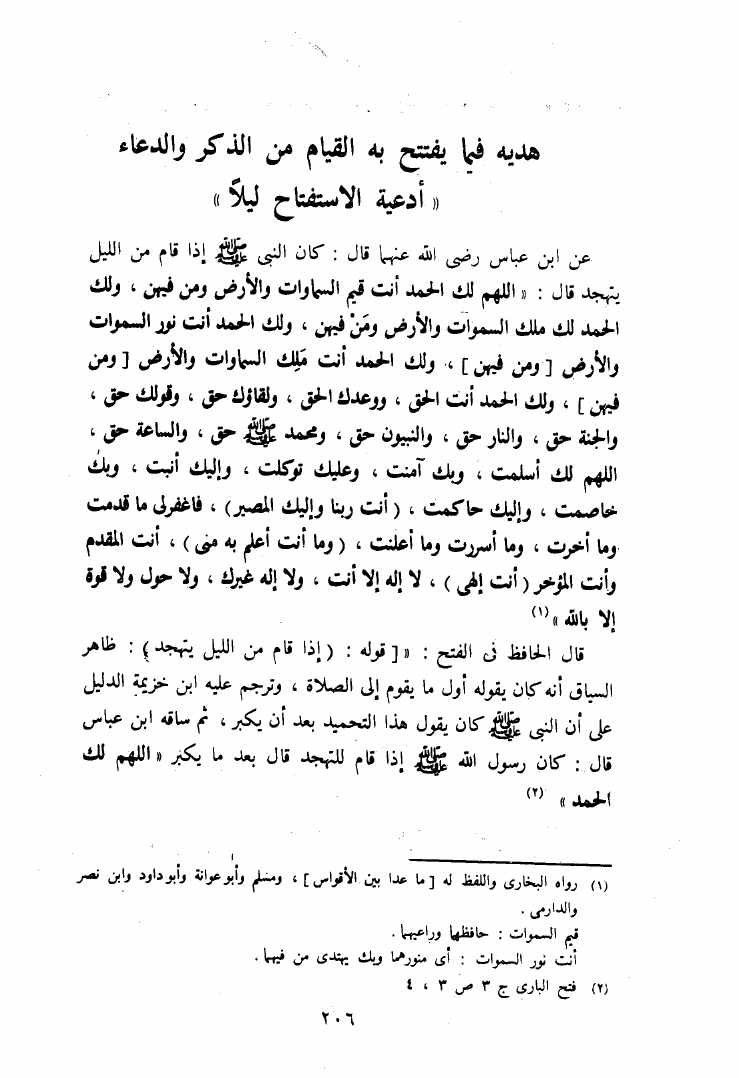 هديه فيما يفتتح به القيام من الذكر والدعاء
« أدعية الاستفتاح ليلاً »
عن ابن عباس رضى الله عنهما قال : كان النبى ﷺ إذا قام من الليل
يتهجد قال : « اللهم لك الحمد أنت قيم السماوات والأرض ومن فيهن ، ولك
الحمد لك ملك السموات والأرض ومَنْ فيهن ، ولك الحمد أنت نور السموات
والأرض [ ومن فيهن ] ، ولك الحمد أنت مَلِك السماوات والأرض [ ومن
فيهن ] ، ولك الحمد أنت الحق ، ووعدك الحق ، ولقاؤك حق ، وقولك حق ،
والجنة حق ، والنار حق ، والنبيون حق ، ومحمد ﷺ حق ، والساعة حق ،
اللهم لك أسلمت ، وبك آمنت ، وعليك توكلت ، وإليك أنبت ، وبك
خاصمت ، وإليك حاكمت ، ( أنت ربنا وإليك المصير ) ، فاغفرلى ما قدمت
وما أخرت ، وما أسررت وما أعلنت ، ( وما أنت أعلم به منى ) ، أنت المقدم
وأنت المؤخر ( أنت إلهى ) ، لا إله إلا أنت ، ولا إله غيرك ، ولا حول ولا قوة
إلا بالله » (١)
قال الحافظ فى الفتح : « [ قوله : ( إذا قام من الليل يتهجد ) : ظاهر
السياق أنه كان يقوله أول ما يقوم إلى الصلاة ، وترجم عليه ابن خزيمة الدليل
على أن النبى ﷺ كان يقول هذا التحميد بعد أن يكبر ، ثم ساقه ابن عباس
قال : كان رسول الله ﷺ إذا قام للتهجد قال بعد ما يكبر « اللهم لك
الحمد » (٢)
(١) رواه البخارى واللفظ له [ ما عدا بين الأقواس ] ، ومسلم وأبو عوانة وأبو داود وابن نصر
والدارمى .
قيم السموات : حافظها وراعيها .
أنت نور السموات : أى منورهما وبك يهتدى من فيهما .
(٢) فتح البارى ج ٣ ص ٣ ، ٤
٢٠٦